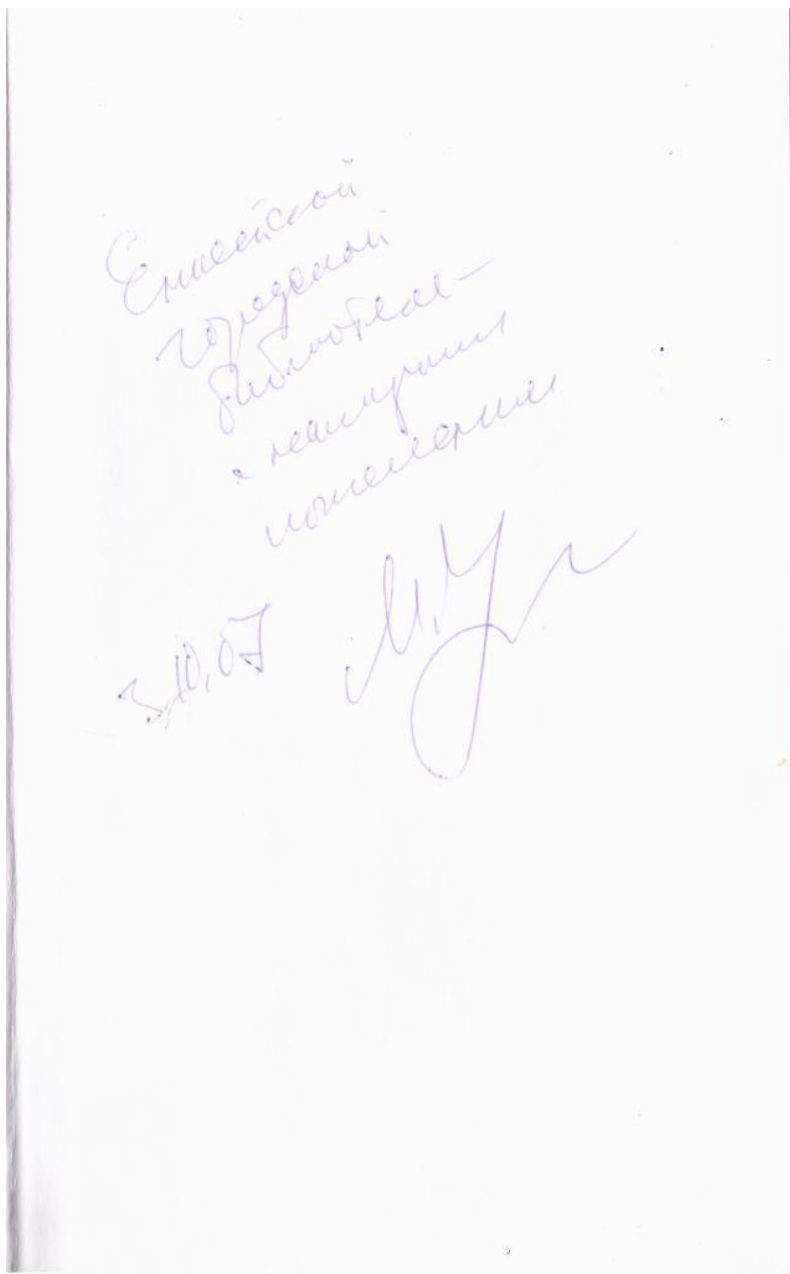 Енисейской
городской
библиотеке –
с наилучшими
пожеланиями
3.10.07